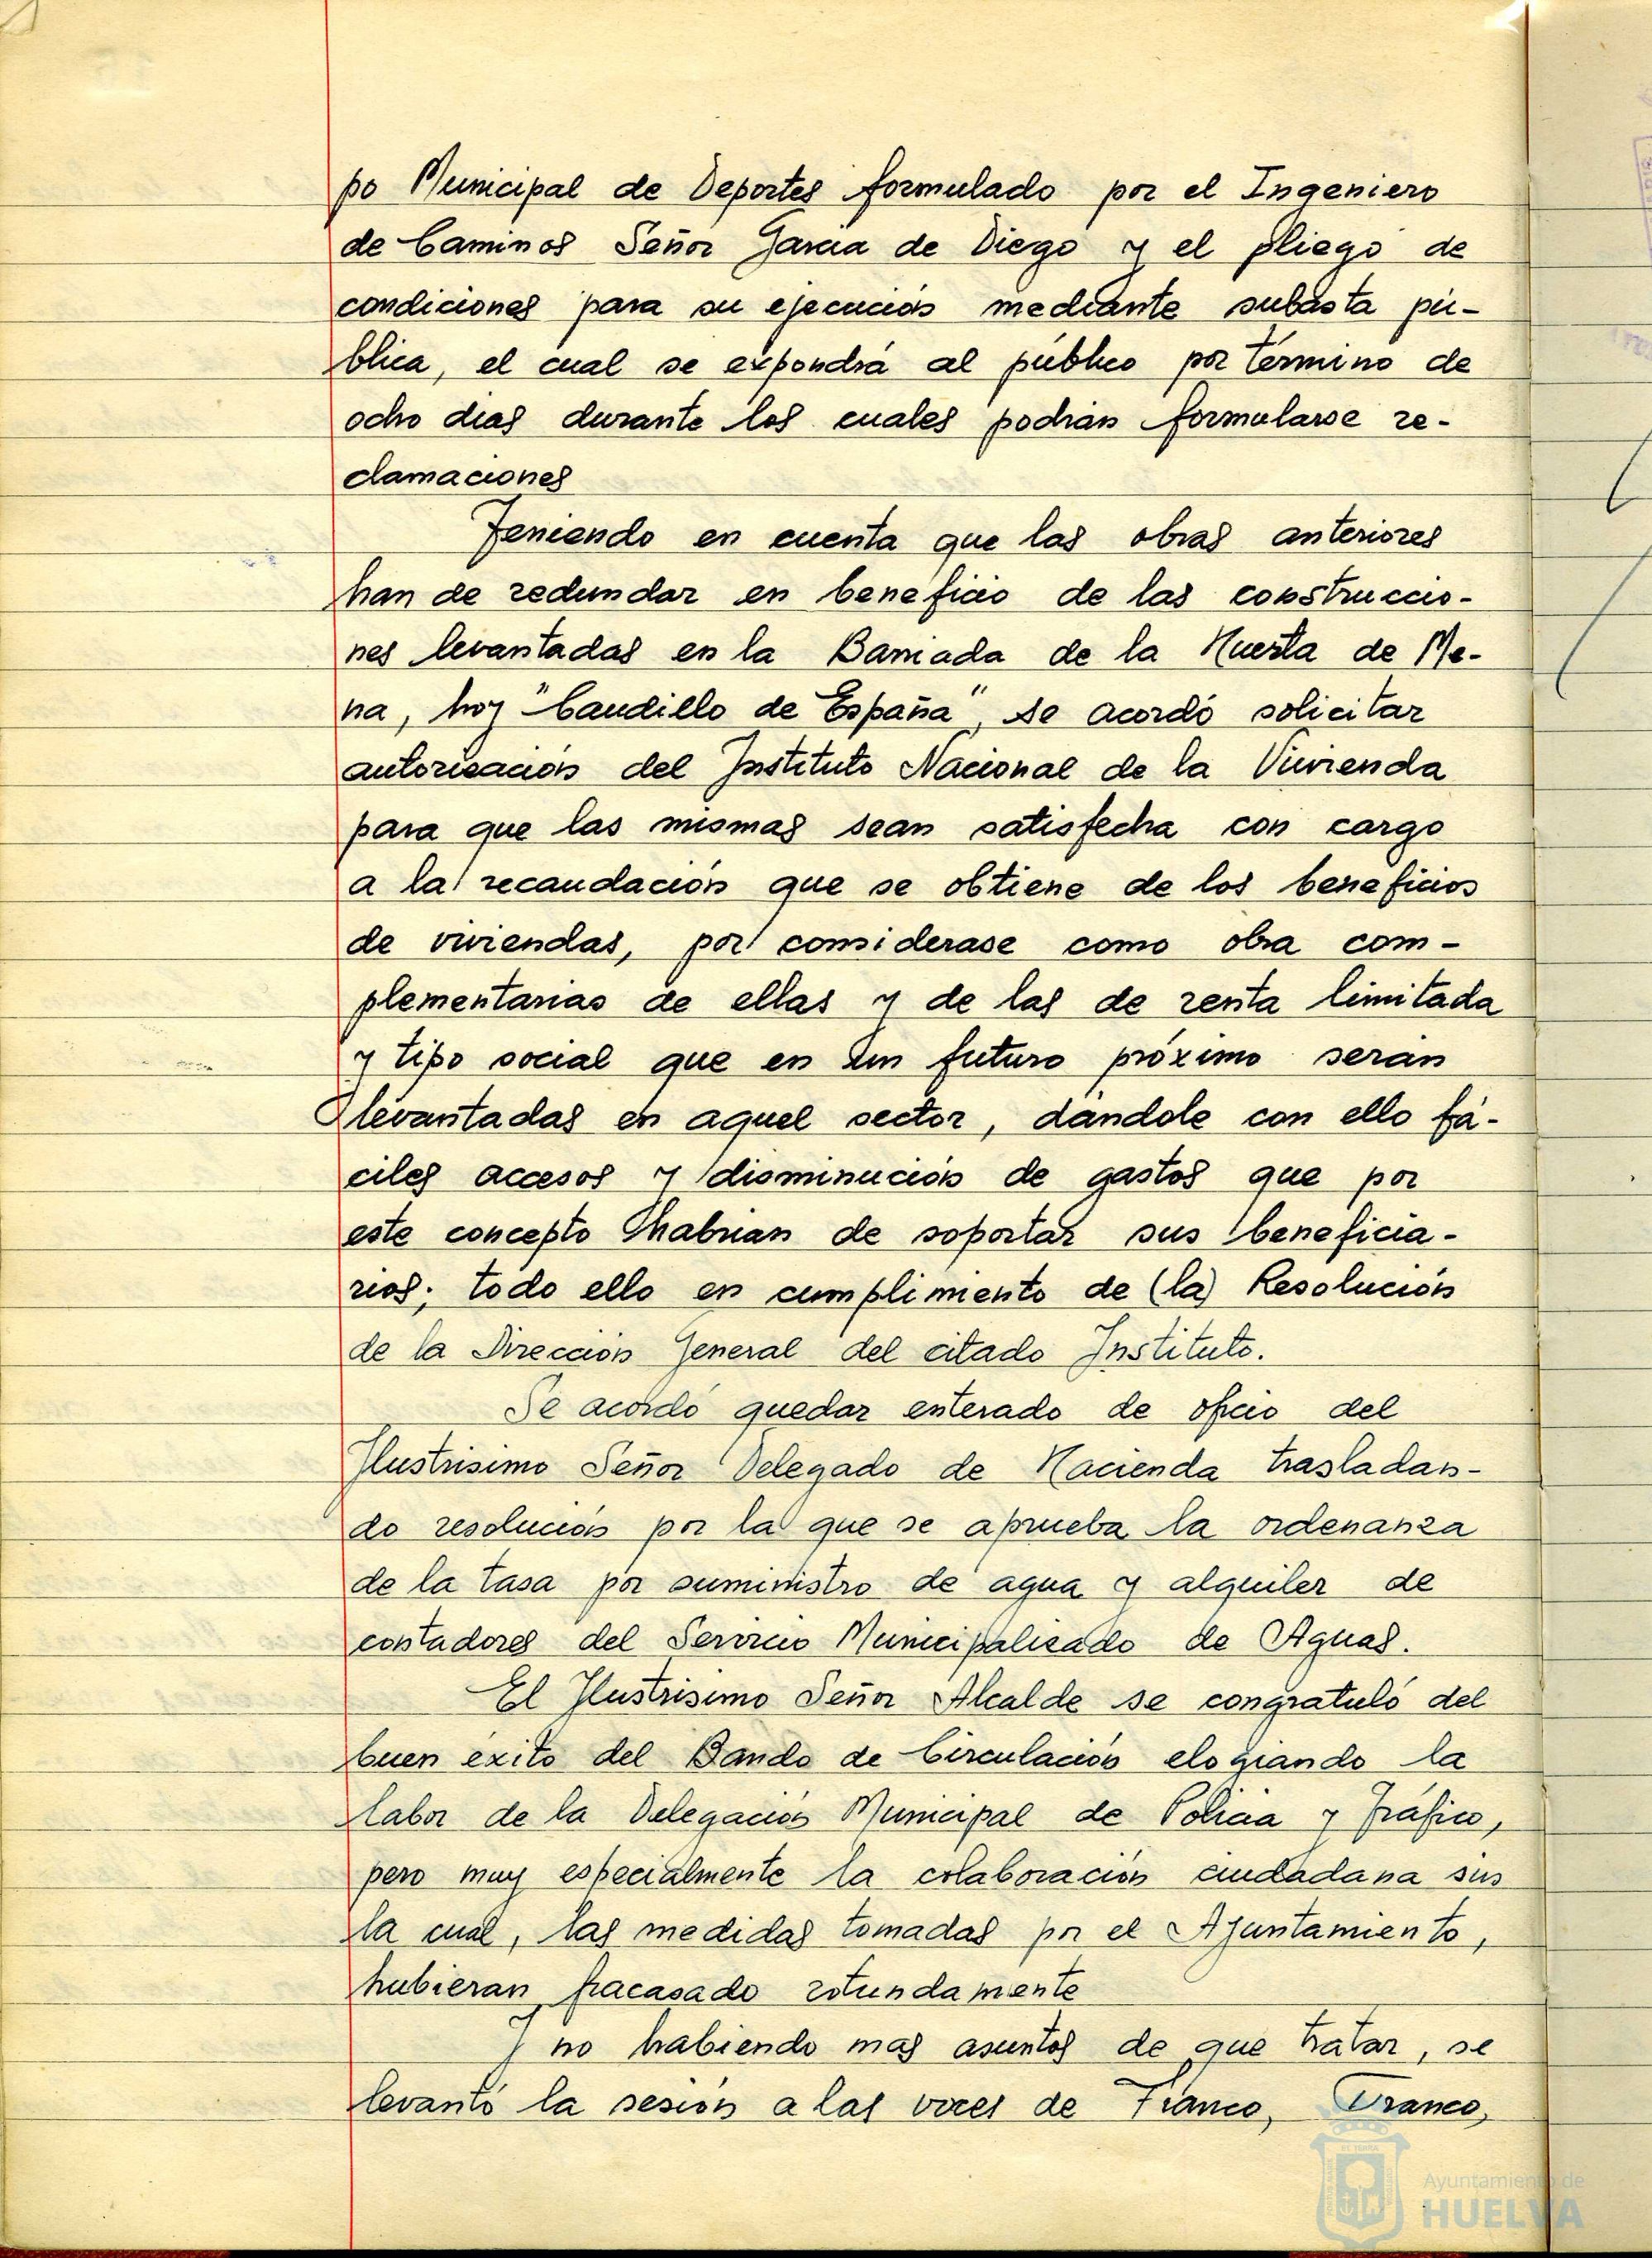 po Municipal de Deportes formulado por el Ingeniero
de Caminos Señor Garcia de Diego y el pliego de
condiciones para su ejecución mediante subasta pú-
blica, el cual se expondrá al público por término de
ocho dias durante los cuales podrán formularse re-
clamaciones
Teniendo en cuenta que las obras anteriores
han de redundar en beneficio de las construccio-
nes levantadas en la Barriada de la Huerta de Me-
na, hoy "Caudillo de España", se acordó solicitar
autorización del Instituto Nacional de la Vivienda
para que las mismas sean satisfecha con cargo
a la recaudación que se obtiene de los beneficios
de viviendas, por considerase como obra com-
plementarias de ellas y de las de renta limitada
y tipo social que en un futuro próximo serán
levantadas en aquel sector, dándole con ello fá-
ciles accesos y disminución de gastos que por
este concepto habrian de soportar sus beneficia-
rios; todo ello en cumplimiento de (la) Resolución
de la Dirección General del citado Instituto.
Se acordó quedar enterado de oficio del
Ilustrisimo Señor Delegado de Hacienda trasladan-
do resolución por la que se aprueba la ordenanza
de la tasa por suministro de agua y alquiler de
contadores del Servicio Municipalizado de Aguas.
El Ilustrisimo Señor Alcalde se congratuló del
buen éxito del Bando de Circulación elogiando la
labor de la Delegación Municipal de Policia y Tráfico,
pero muy especialmente la colaboración ciudadana sin
la cual, las medidas tomadas por el Ayuntamiento,
hubieran fracasado rotundamente
Y no habiendo mas asuntos de que tratar, se
levantó la sesión a las voces de Franco, Franco,
Ayuntamiento de
HUELVA